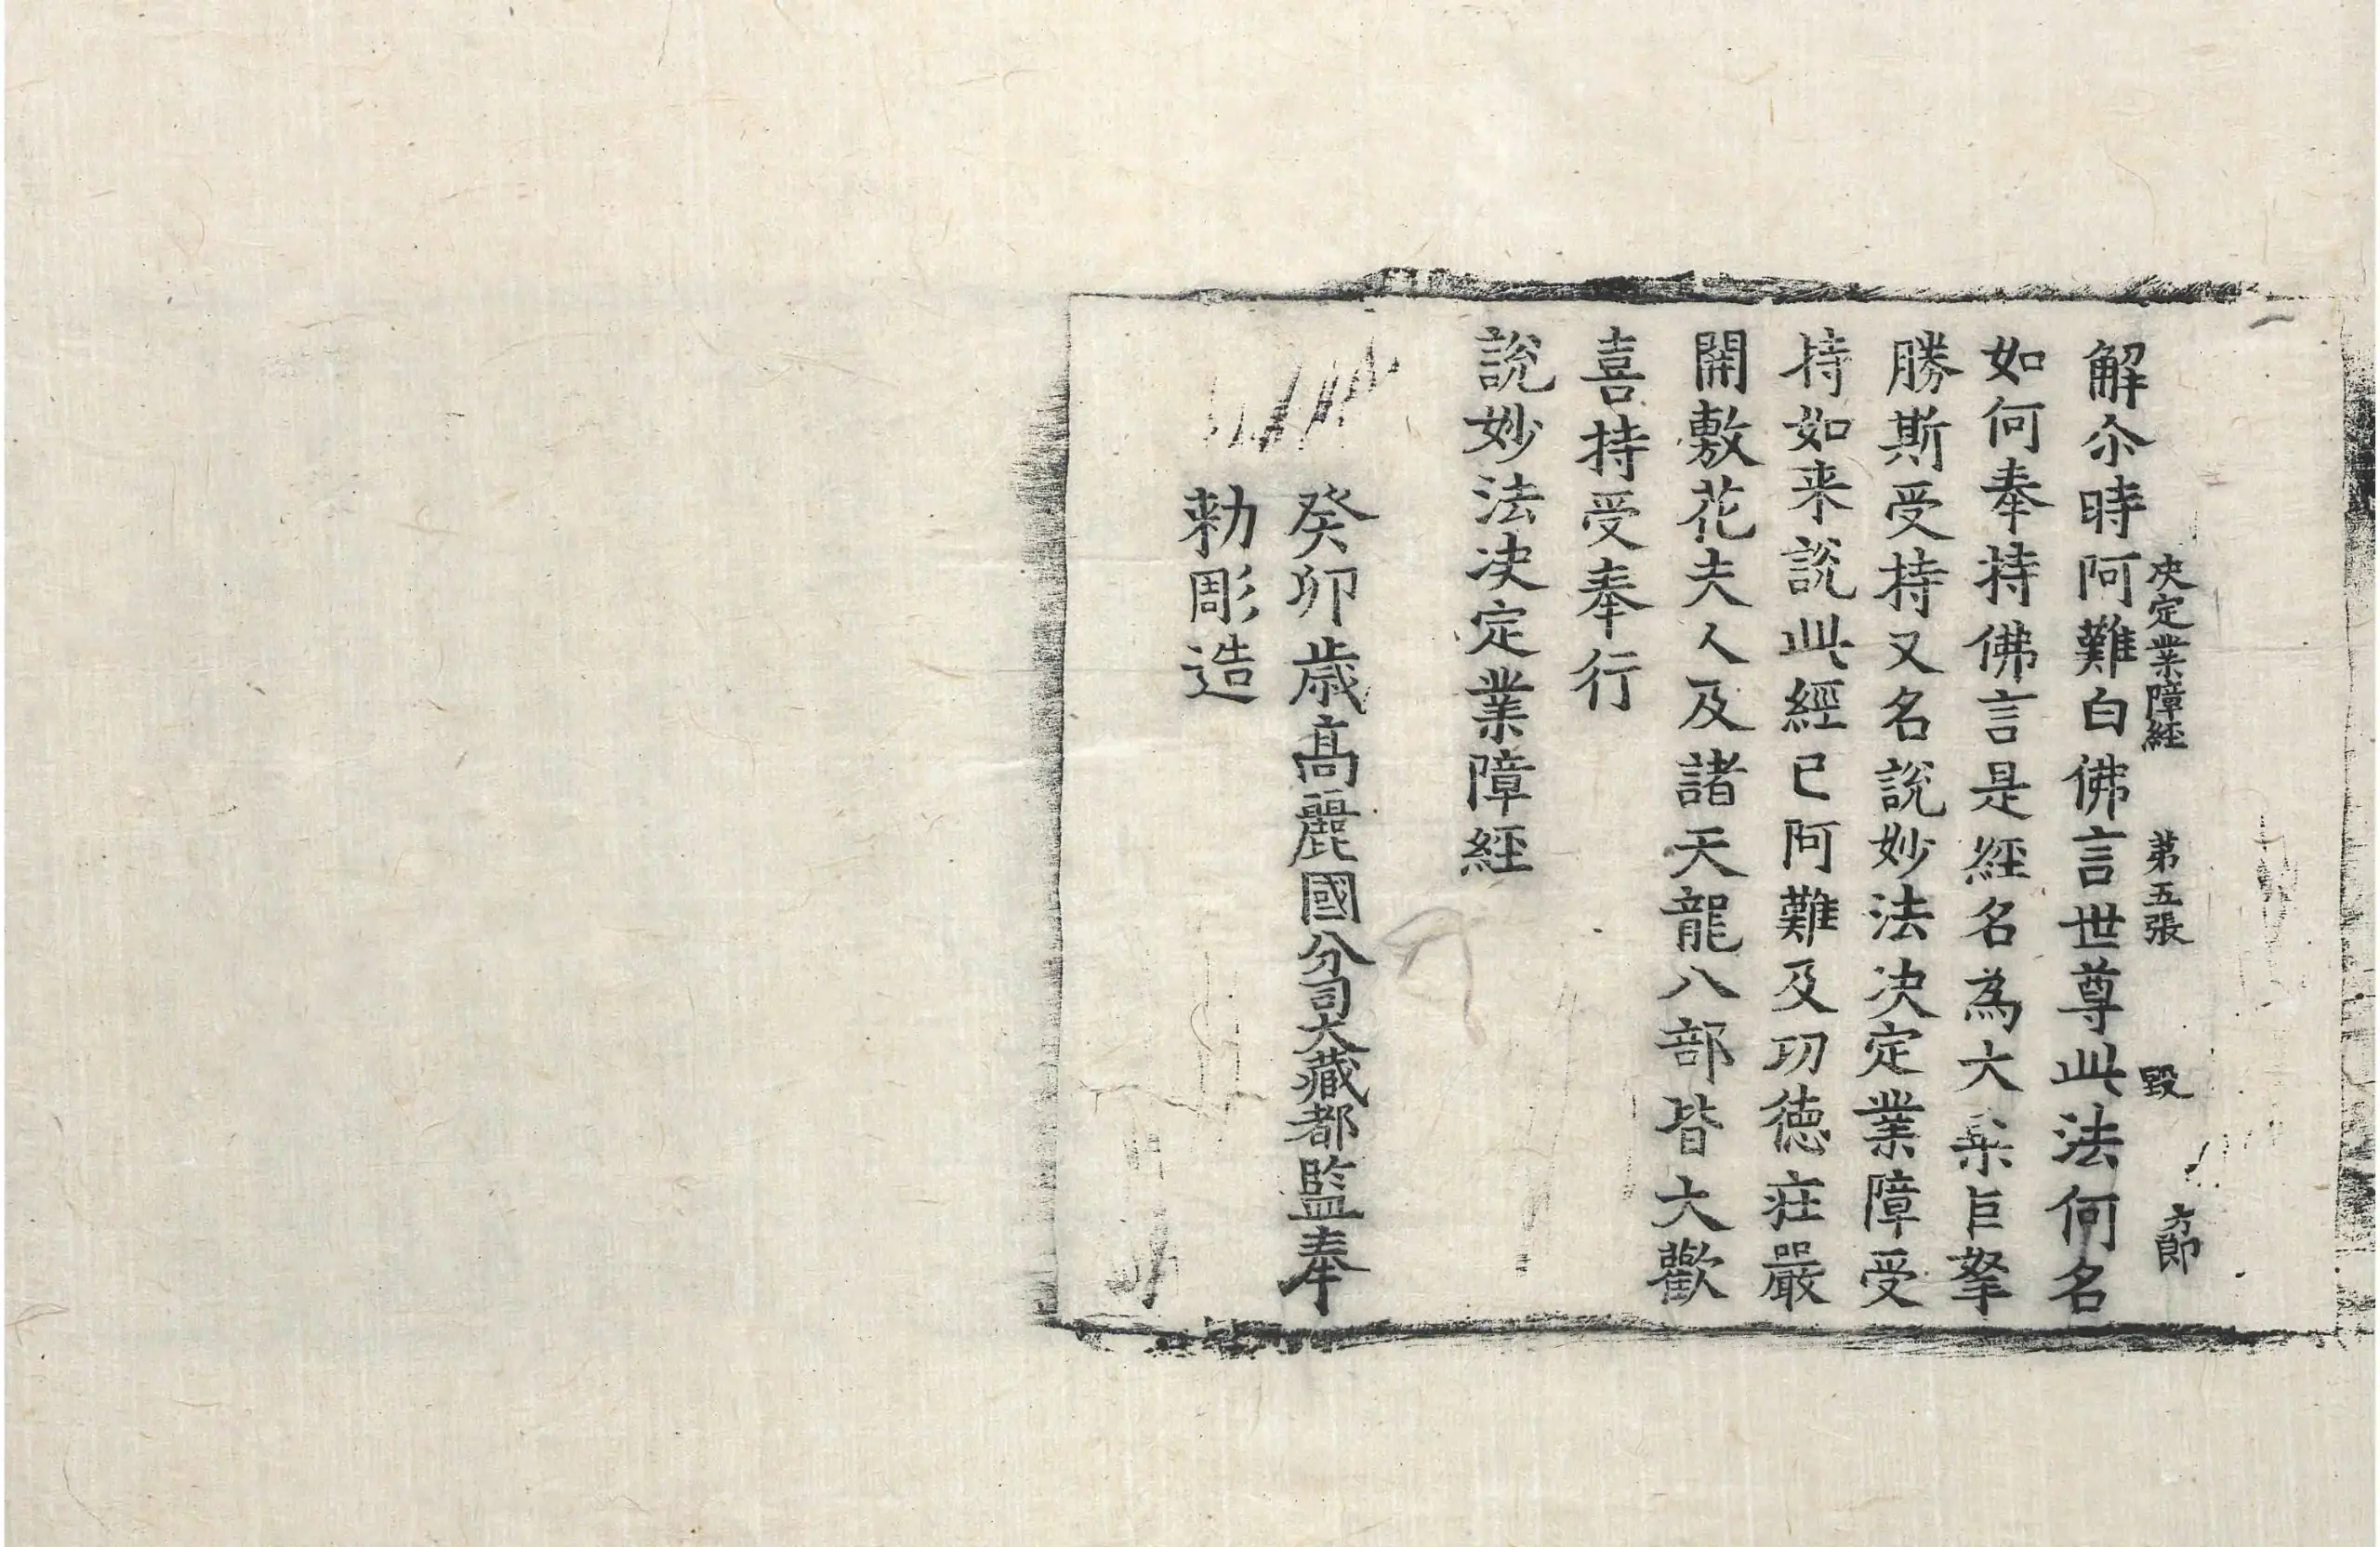 决定業障經 第五張 毀 方
解尒時阿難白佛言世尊此法何名
如何奉持佛言是經名為大乘巨
勝斯受持又名說妙法决定業障受
持如来說此經已阿難及功徳莊嚴
開敷花夫人及諸天龍八部皆大歡
喜持受奉行
說妙法决定業障經
癸卯歲高麗國分司大藏都監奉
勑彫造